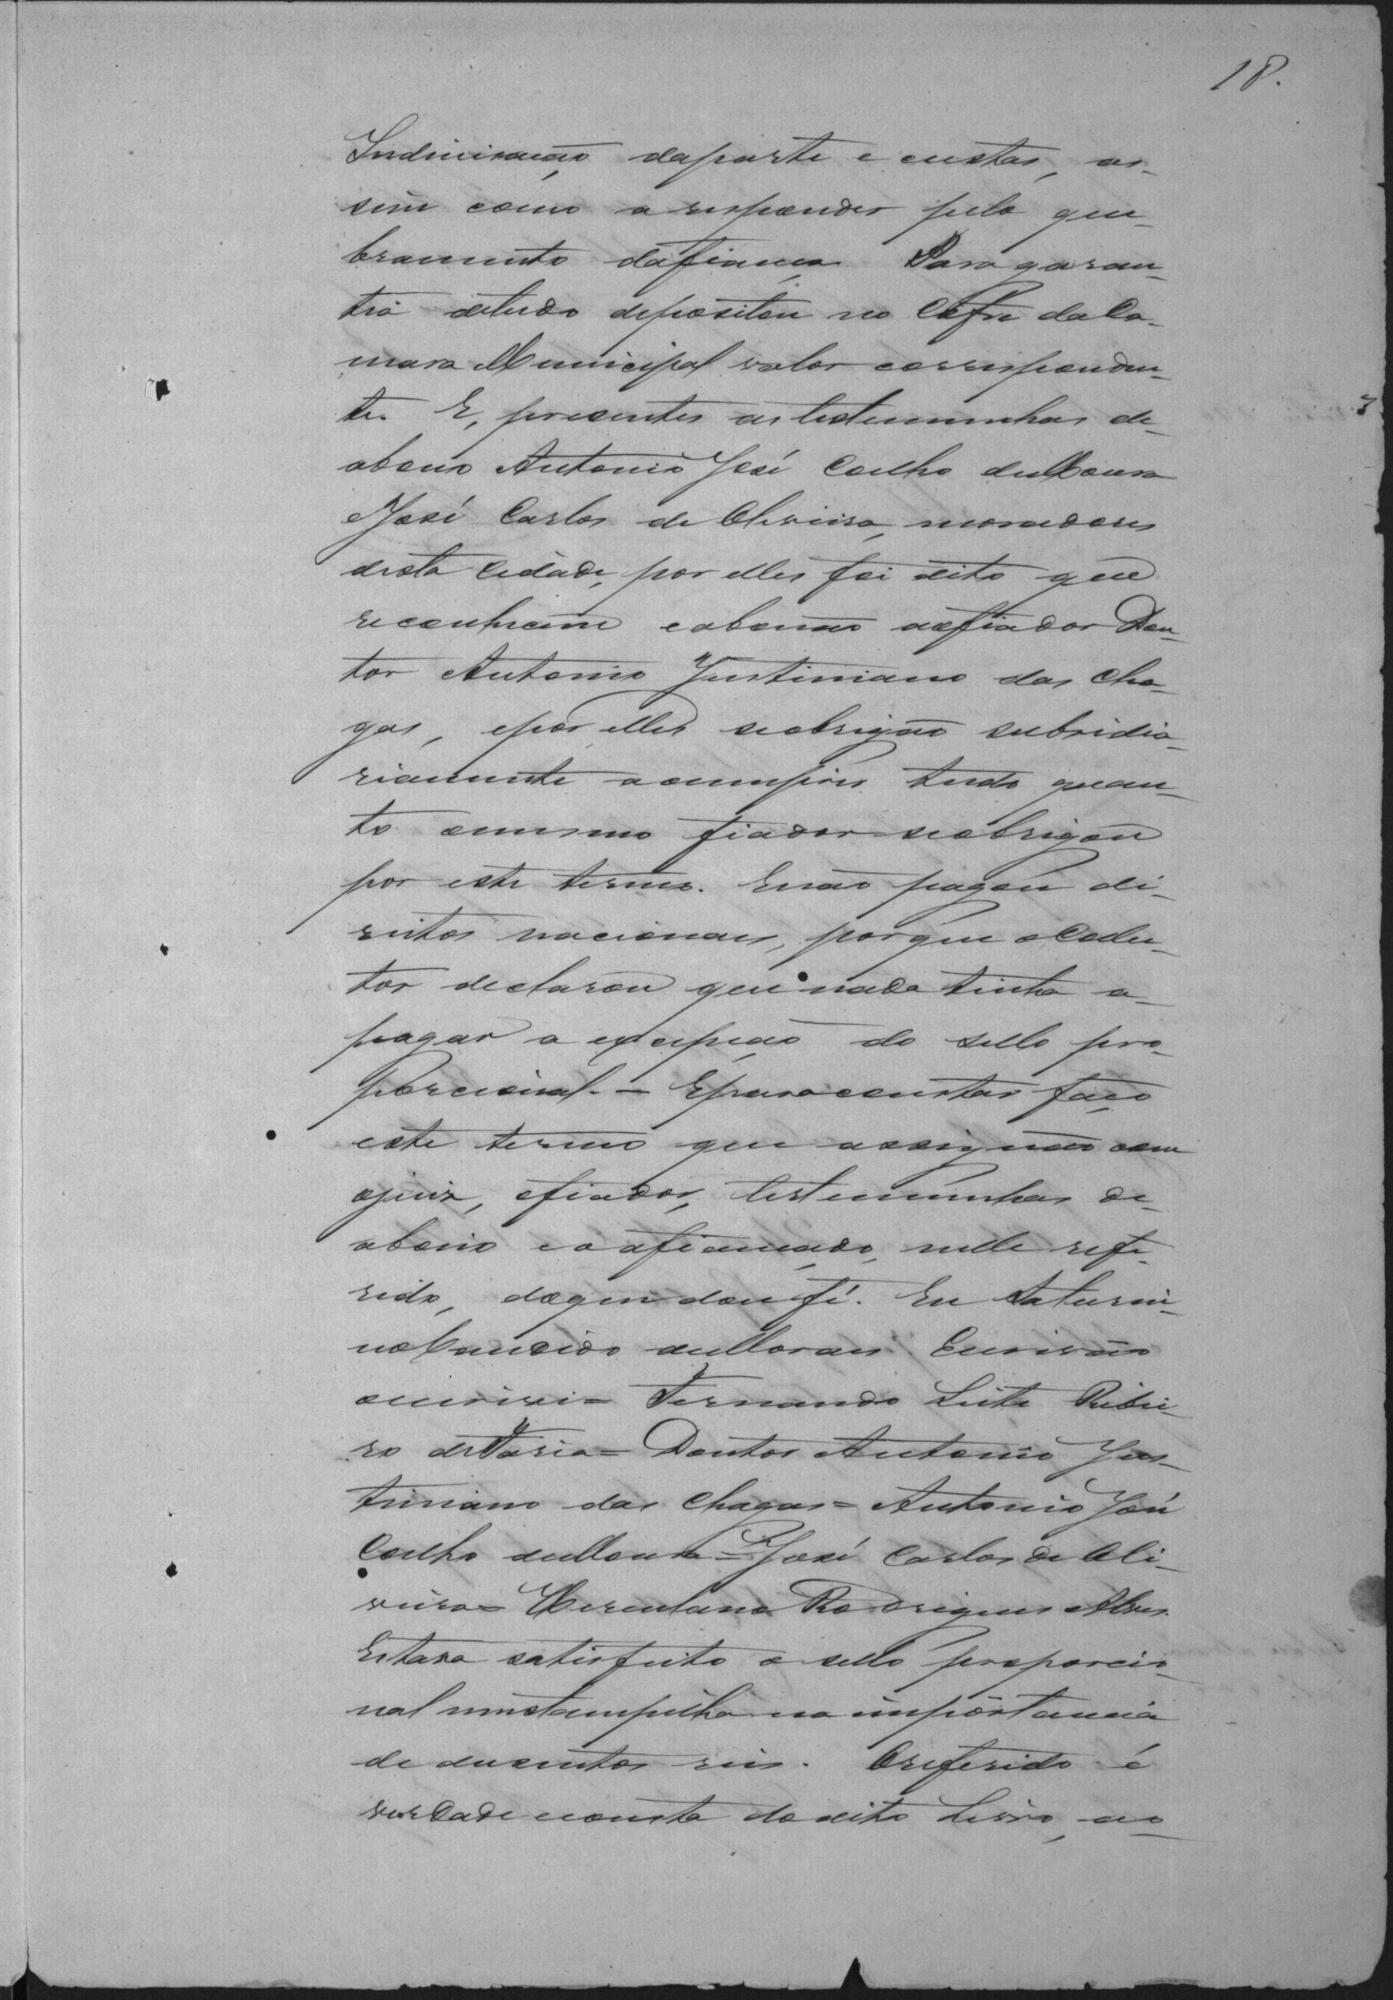 18.
Indinisação daparte e custas, as-
sim como a responder pelo que-
bramento dafiança Para garan-
tia detudo depositou no Cofre daCa-
mara Municipal valor corresponden-
te. E, presentes as testemunhas de
abono Antonio José Coelho deMoura
José Carlos de Oliveira, moradores
desta Cidade, por elles foi dito que
reconhecem eabonão aofiador Dou-
tor Antonio Justiniano das Cha-
gas, epor elles seobrigão subsidia-
riamente acumprir tudo quan-
to omesmo fiador seobrigou
por este termo. Enão pagou di-
reitos nacionaes, porque oColle-
tor declarou que nada tinha a-
pagar a excepção do sello pro-
porcional. = Eparaconstar faço
este termo que assignão com
ojuiz, ofiador, testemunhas de
abono eoafiançado, nelle refe-
rido, doque dou fé. Eu Saturni-
noCandido deMoraes Escrivão
oescrevi = Fernando Leite Ribei-
ro deFaria = Doutor Antonio Jus-
tiniano das Chagas = Antonio José
Coelho deMoura = José Carlos de Oli-
veira = Herculano Rodrigues Alves.
Estava satisfeito o sello proporcio-
nal numestampilha na importancia
de dusentos reis. Oreferido é
verdade econsta dodito Livro, ao